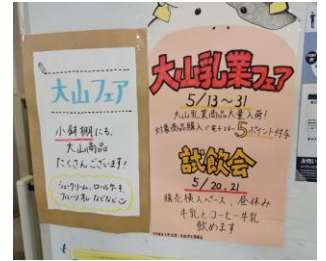 大山フェア
小鉢棚にも、
大山商品
たくさんございます!
シュークリーム、ロールケーキ
フルーツオレ などなど
大山乳業フェア
5/13〜31
大山乳業商品大量入荷!
対象商品購入で 5ポイント付与
試飲会
5/20,21
購売横スペース、昼休み
牛乳とコーヒー牛乳
飲めます